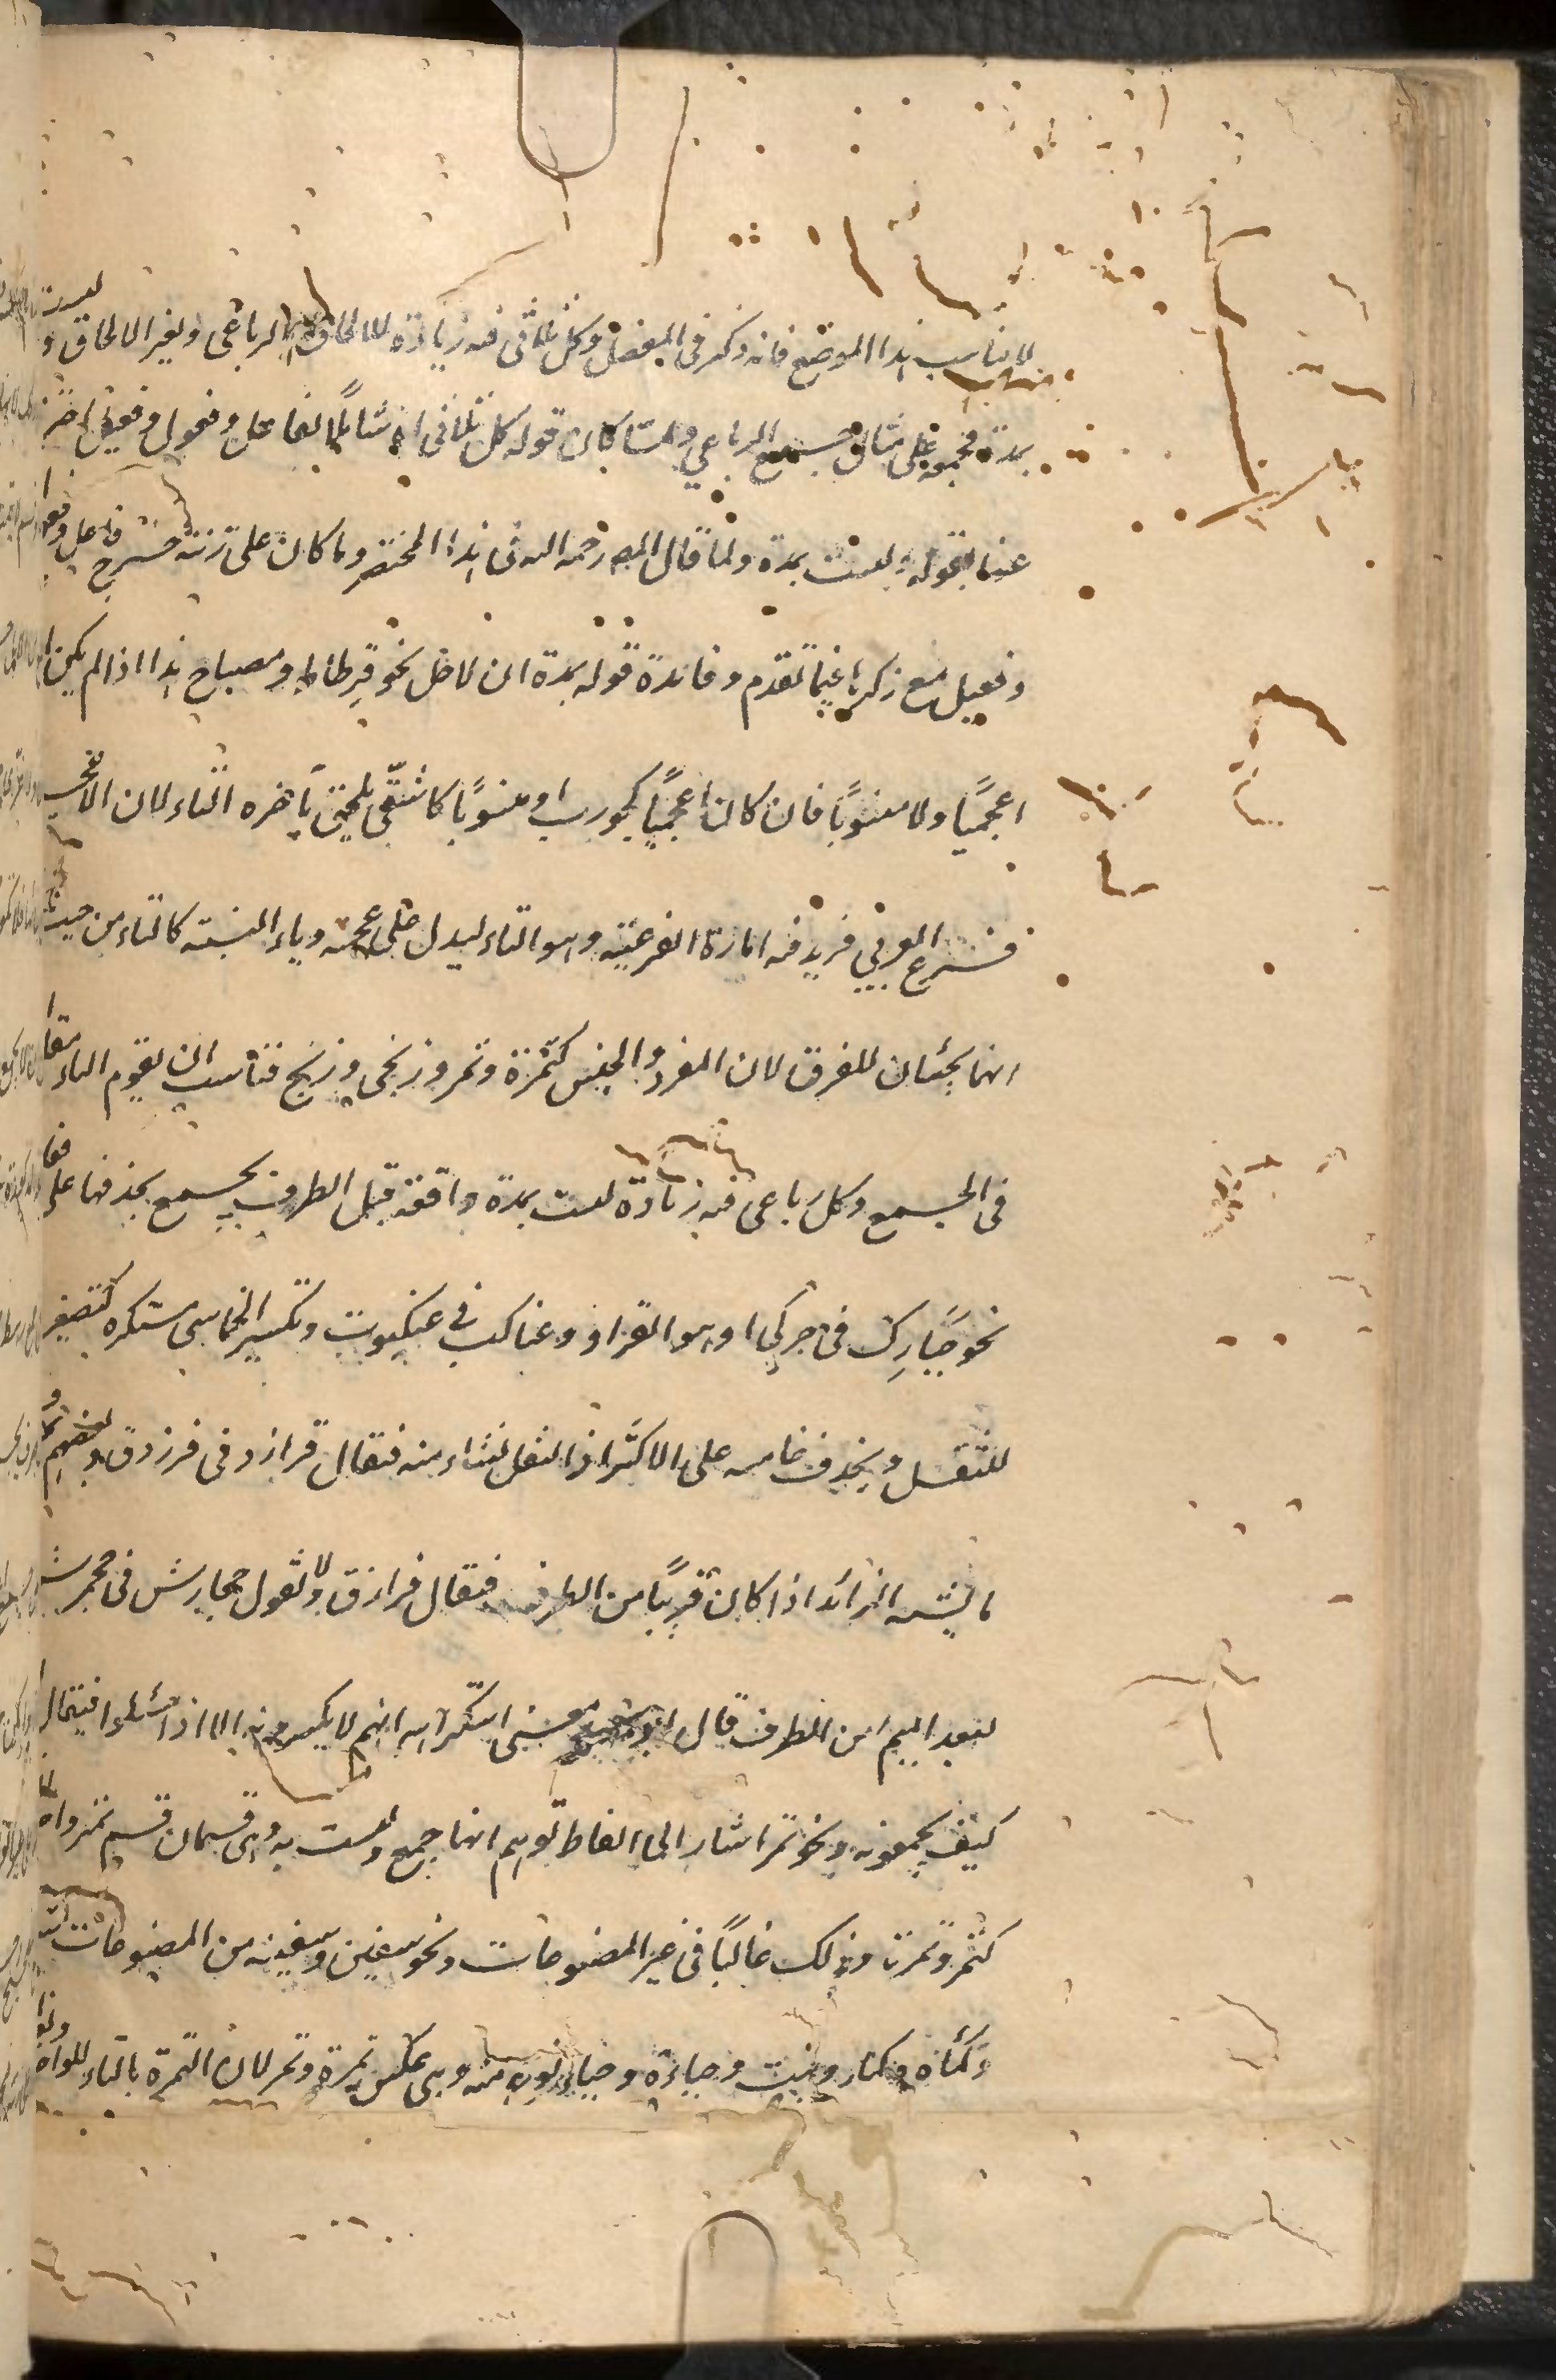 لا يناسب هذا الموضع فانه ذكر فى المفصل وكل ثلاثى فيه زيادة للالحاق بالرباعى ولغير الالحاق وليست
بمدة فجمعه على مثال جمع الرباعي ولما كان قوله كل ثلاثى اه شاملا لفاعل وفعول وفعيل
عنها بقوله وليست بمدة ولما قال المص رحمه الله فى هذا المختصر وما كان على زنته خرج فاعل وفعول
وفعيل مع ذكرها فيما تقدم وفائدة قوله بمدة ان لا نحو قرطاط ومصباح هذا اذا لم يكن
اعجميًا ولا منسوبًا فان كان اعجميًا كجورب او منسوبًا كاشعثى يلحق بآخره التاء لان الاعجمى
فرع العربي فزيد فيه امارة الفرعية وهو التاء ليدل على عجمته وياء النسبة كالتاء من حيث
انهما يجئان للفرق لان المفرد والجنس كتمرة وتمر وزنجى وزنج فناسب ان يقوم التاء مقامها
فى الجمع وكل رباعى فيه زيادة ليست بمدة واقعة قبل الطرف يجمع بحذفها على فعالل
نحو حبارك فى حبركى وهو القراد وعناكب فى عنكبوت وتكسير الخماسى مستكره كتصغيره
للثقل ويحذف خامسه على الاكثر اذ الثقل نشاء منه فيقال فرازد فى فرزدق وبعضهم
ما يشبه الزائد اذا كان قريبًا من الطرف فيقال فرازق ولا تقول جحارش فى جحمرش
لبعد الميم من الطرف قال معنى استكراهه انهم لا يكسرونه الا اذا سئلوا فيقال
كيف يجمعونه ونحو تمر اشار الى الفاظ توهم انها جمع وليست به وهى قسمان قسم تميز واحده
كتمر وتمرة وذلك غالبًا فى غير المصنوعات ونحو سفين وسفينة من المصنوعات
وكمأة وكمأ وجباءة وجباء منه وهى عكس تمرة وتمر لان التمرة بالتاء للواحد